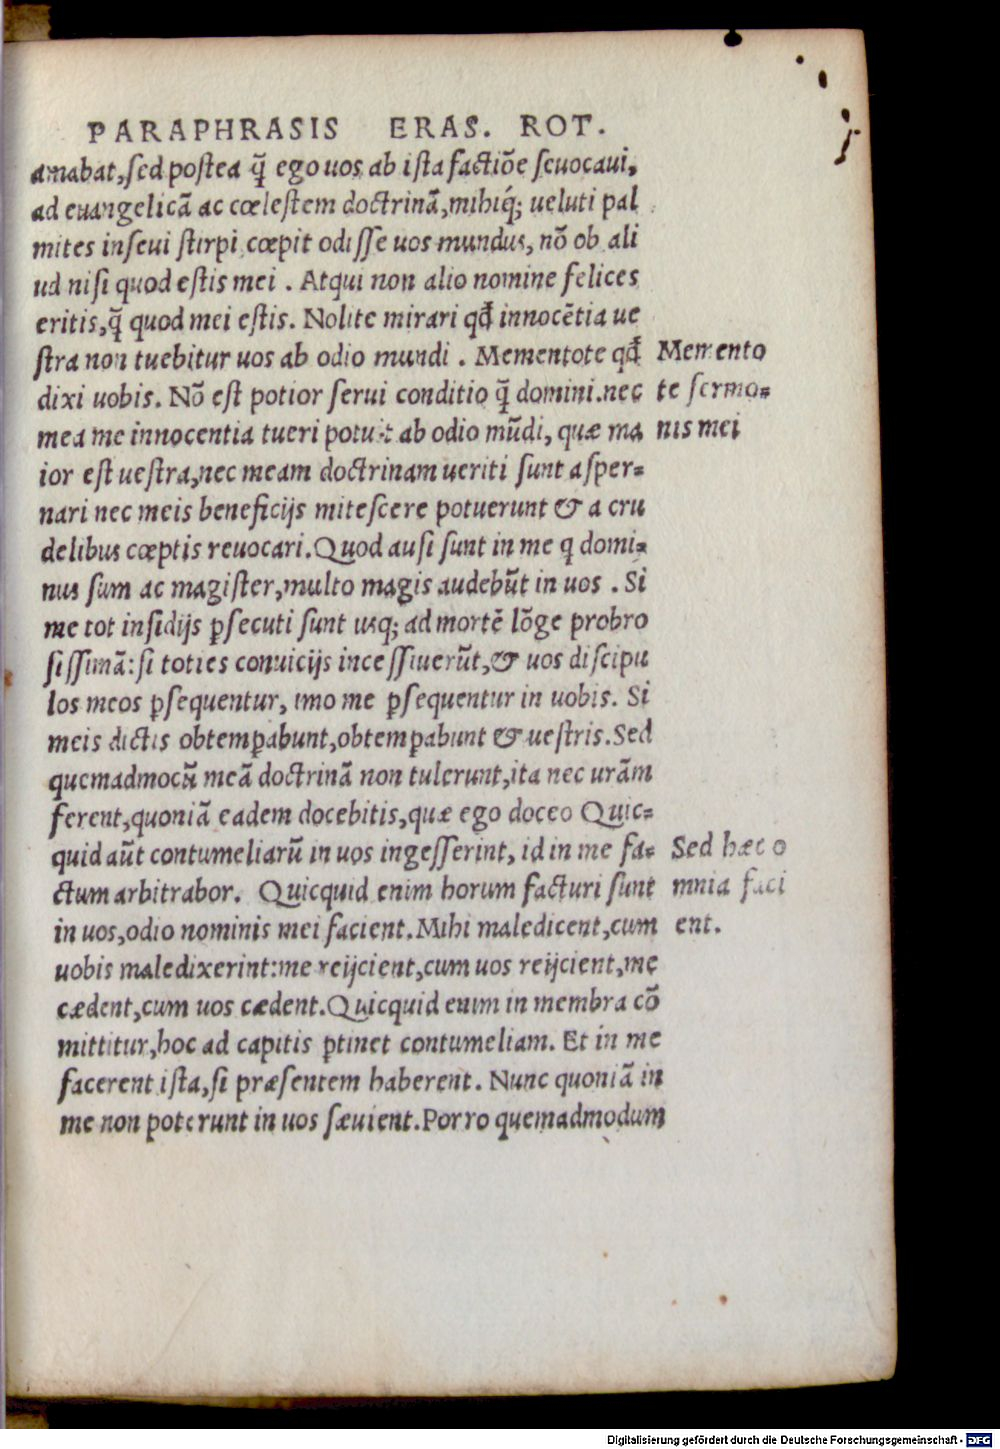 PARAPHRASIS ERAS. ROT.
amabat, sed postea q̄ ego uos ab ista factiōe seuocaui,
ad euangelicā ac cœlestem doctrinā, mihiq́; ueluti pal
mites inseui stirpi cœpit odisse uos mundus, nō ob ali
ud nisi quod estis mei . Atqui non alio nomine felices
eritis, q̄ quod mei estis. Nolite mirari qđ innocētia ue
stra non tuebitur uos ab odio mundi . Mementote qđ
dixi uobis. Nō est potior serui conditio q̄ domini. nec
mea me innocentia tueri potuit ab odio mūdi, quæ ma
ior est uestra, nec meam doctrinam ueriti sunt asper=
nari nec meis beneficijs mitescere potuerunt & a cru
delibus cœptis reuocari. Quod ausi sunt in me q domi=
nus sum ac magister, multo magis audebūt in uos . Si
me tot insidijs ꝑsecuti sunt usq; ad mortē lōge probro
sissimā: si toties conuicijs incessiuerūt, & uos discipu
los meos ꝑsequentur, imo me ꝑsequentur in uobis. Si
meis dictis obtemꝑabunt, obtemꝑabunt & uestris. Sed
quemadmodū meā doctrinā non tulerunt, ita nec urām
ferent, quoniā eadem docebitis, quæ ego doceo Quic=
quid aūt contumeliarū in uos ingesserint, id in me fa=
ctum arbitrabor. Quicquid enim horum facturi sunt
in uos, odio nominis mei facient. Mihi maledicent, cum
uobis maledixerint: me reijcient, cum uos reijcient, me
cædent, cum uos cædent. Quicquid enim in membra cō
mittitur, hoc ad capitis ꝑtinet contumeliam. Et in me
facerent ista, si præsentem haberent. Nunc quoniā in
me non poterunt in uos sæuient. Porro quemadmodum
Memento
te sermo=
nis mei
Sed hæc o
mnia faci
ent.
Digitalisierung gefördert durch die Deutsche Forschungsgemeinschaft - DFG